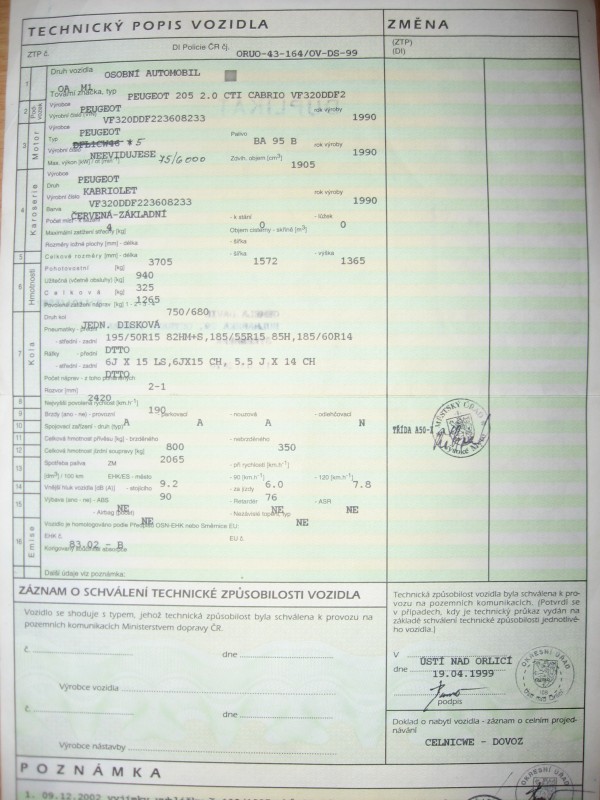 TECHNICKÝ POPIS VOZIDLA
ZMĚNA
ZTP č.
DI Policie ČR čj. ORUO-43-164/OV-DS-99
(ZTP)
(DI)
1 Druh vozidla OSOBNÍ AUTOMOBIL
OA M1
Tovární značka, typ PEUGEOT 205 2.0 CTI CABRIO VF320DDF2
2 Výrobce PEUGEOT rok výroby 1990
Výrobní číslo VF320DDF223608233
Motor
3 Výrobce PEUGEOT Palivo BA 95 B
Typ
Výrobní číslo NEEVIDUJESE rok výroby 1990
Max. výkon [kW] / ot [min⁻¹] 75/6000 Zdvih. objem [cm³] 1905
Karoserie
4 Výrobce PEUGEOT
Druh KABRIOLET
Výrobní číslo VF320DDF223608233 rok výroby 1990
Barva ČERVENÁ-ZÁKLADNÍ
Počet míst 4 - k stání 0 - lůžek 0
Maximální zatížení střechy [kg] Objem cisterny - skříně [m³]
Rozměry ložné plochy [mm] - délka - šířka
5 Celkové rozměry [mm] - délka 3705 - šířka 1572 - výška 1365
Hmotnosti
6 Pohotovostní [kg] 940
Užitečná (včetně obsluhy) [kg] 325
Celková [kg] 1265
750/680
Kola
7 Druh kol JEDN. DISKOVÁ
Pneumatiky - přední 195/50R15 82HM+S,185/55R15 85H,185/60R14
- střední - zadní DTTO
Ráfky - přední 6J X 15 LS,6JX15 CH, 5.5 J X 14 CH
- střední - zadní DTTO
Počet náprav - z toho poháněných 2-1
8 Rozvor [mm] 2420
9 Nejvyšší povolená rychlost [km.h⁻¹] 190
10 Brzdy (ano-ne) - provozní A - parkovací A - nouzová A - odlehčovací N
Spojovací zařízení - druh (typ)
TŘÍDA A50-X
MĚSTSKÝ ÚŘAD
11 Celková hmotnost přívěsu [kg] - brzděného 800 - nebrzděného 350
12 Celková hmotnost jízdní soupravy [kg] 2065
13 Spotřeba paliva ZM - při rychlosti [km.h⁻¹]
[dm³] / 100 km EHK/ES - město 9.2 - 90 [km.h⁻¹] 6.0 - 120 [km.h⁻¹] 7.8
14 Vnější hluk vozidla [dB (A)] - stojícího 90 - za jízdy 76
15 Výbava (ano-ne) - ABS NE - Retardér NE - ASR NE
- Airbag (počet) NE - Nezávislé topení, typ
Emise
16 Vozidlo je homologováno podle Předpisu OSN-EHK nebo Směrnice EU:
EHK č. 83.02 - B EU č.
Korigovaný součinitel absorpce
Další údaje viz poznámka:
ZÁZNAM O SCHVÁLENÍ TECHNICKÉ ZPŮSOBILOSTI VOZIDLA
Vozidlo se shoduje s typem, jehož technická způsobilost byla schválena k provozu na
pozemních komunikacích Ministerstvem dopravy ČR.
č. dne
Výrobce vozidla
č. dne
Výrobce nástavby
Technická způsobilost vozidla byla schválena k pro-
vozu na pozemních komunikacích. (Potvrdí se
v případech, kdy je technický průkaz vydán na
základě schválení technické způsobilosti jednotli-
vého vozidla.)
V ÚSTÍ NAD ORLICÍ
dne 19.04.1999
podpis
OKRESNÍ ÚŘAD
Doklad o nabytí vozidla - záznam o celním projed-
návání
CELNICWE - DOVOZ
POZNÁMKA
OKRESNÍ ÚŘAD
1. 09.12.2002